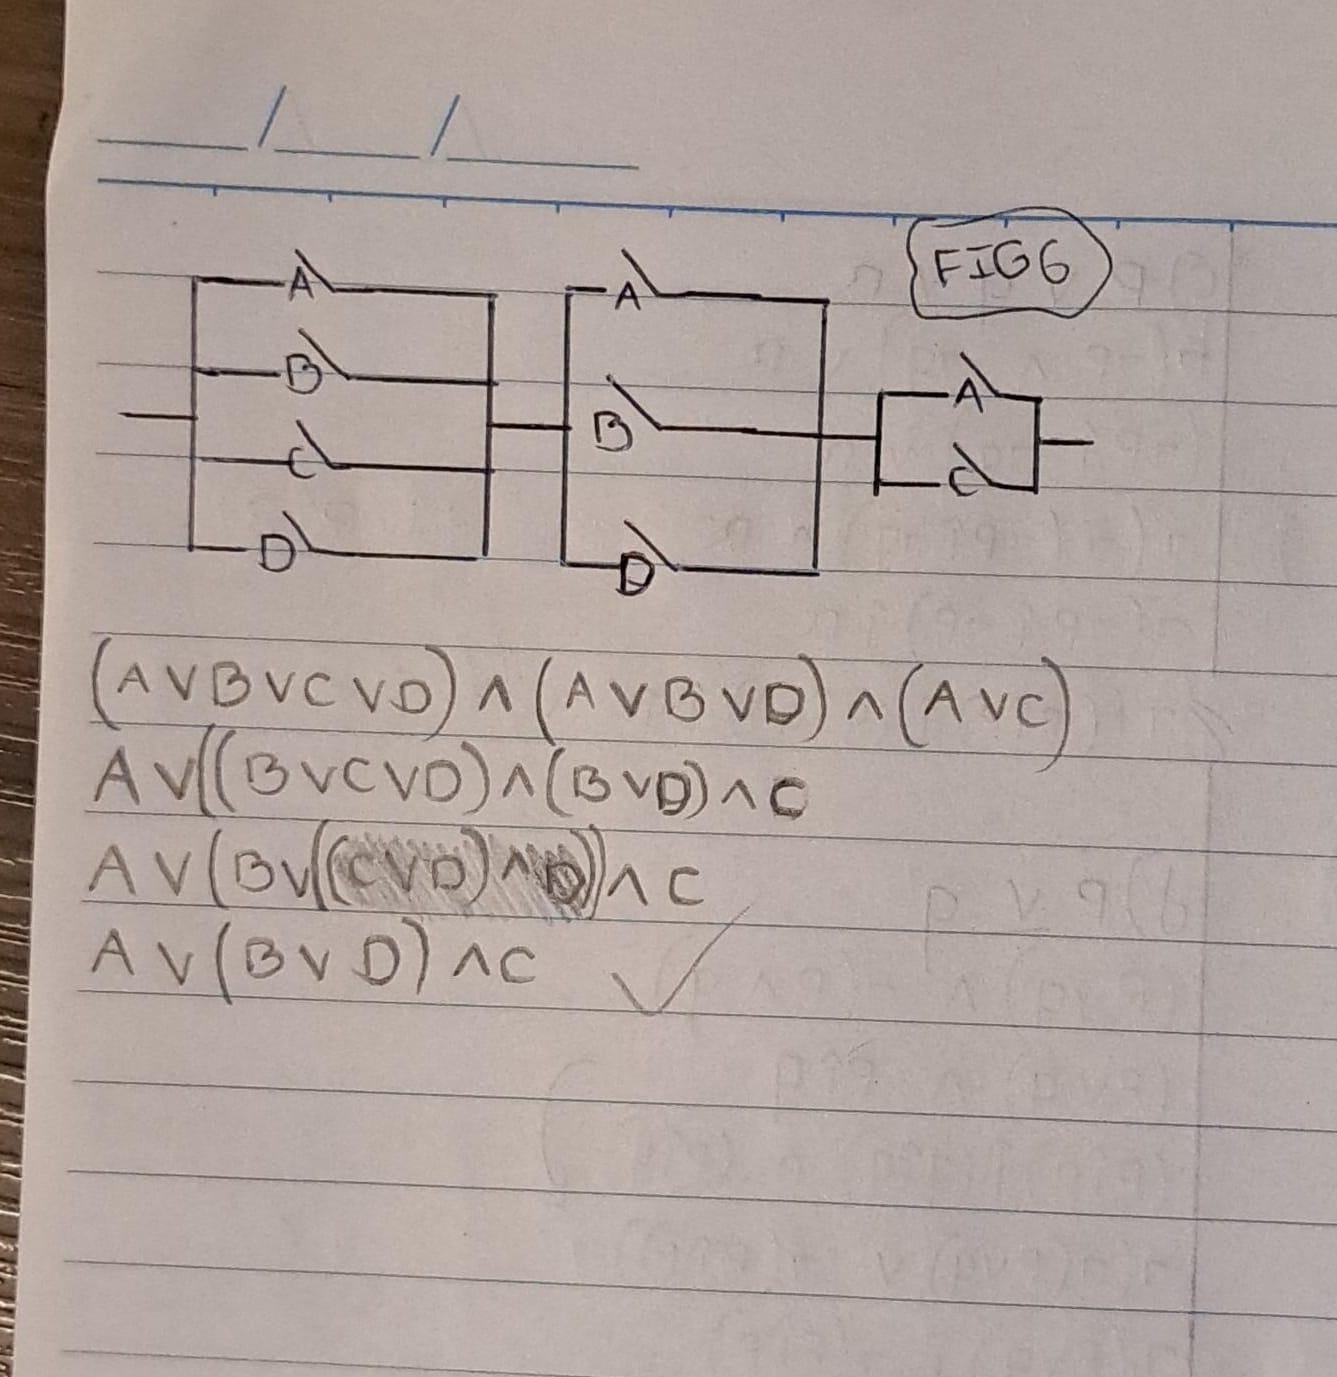 FIG 6
A A
B B A
C C
D D
(A∨B∨C∨D)∧(A∨B∨D)∧(A∨C)
A∨((B∨C∨D)∧(B∨D)∧C
A∨(B∨((C∨D)∧D))∧C
A∨(B∨D)∧C